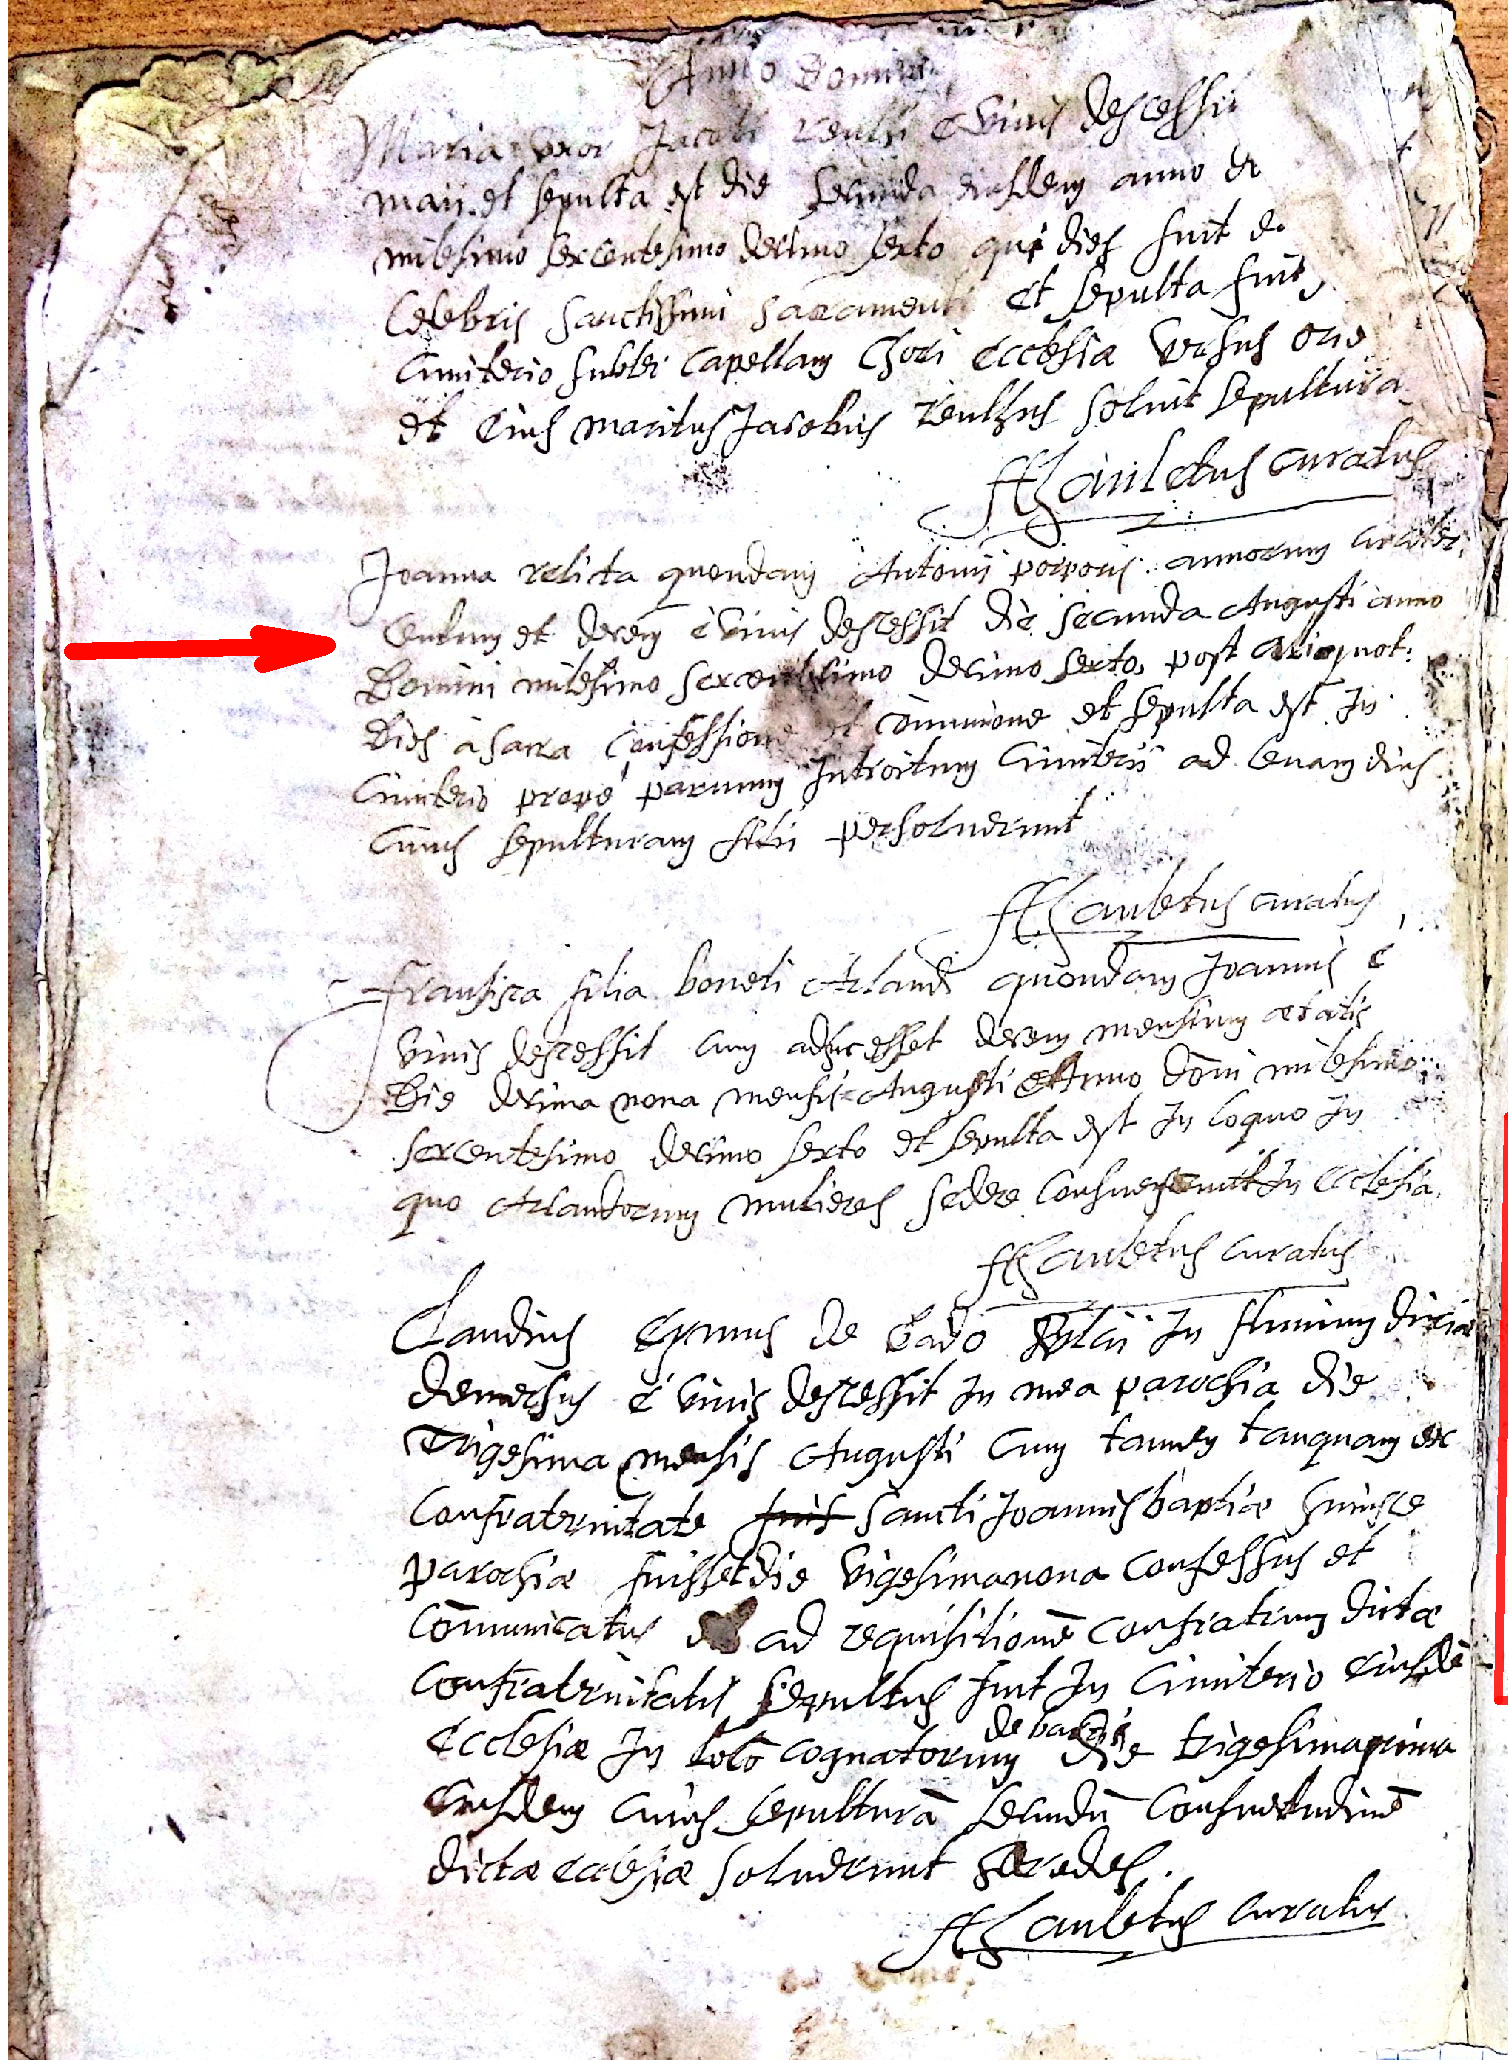 Anno Domini
Maria uxor Jacobi reulhi e vivis descessit
maii et sepulta est die secunda eiusdem anno do
milesimo sexcentesimo decimo sexto qui dies fuit
Celebris sanctissimi sacramenti et sepulta fuit
Cimiterio subter Capellam Chori Ecclesiæ versus orie
et Eius maritus Jacobus reulhus soluit sepultura
curatus
Joanna relicta quondam Antonii porporis annorum circiter
Centum et decem e vivis descessit die secunda Augusti anno
Domini milesimo sexcentesimo decimo sexto, post aliquot
dies a sacra Confessione et comunione et sepulta est in
Cimiterio prope parvum introitum Cimiterii ad levam dius
Cuius sepulturam filii persoluerunt
curatus
fransisca filia boneti Arlaudi quondam Joannis e
vivis descessit cum adhuc esset decem mensium ætatis
Die decima nona mensis Augusti Anno dõni milesimo
sexcentesimo decimo sexto et sepulta est in loquo in
quo Arlandorum mulieres sedere in Ecclesia
curatus
Claudius de in flumine
demersus e vivis descessit in mea parochia die
Trigesima mensis Augusti cum tamen tanquam ex
Confraternitate sancti Joannis baptiæ huiusce
parochiæ fuisset die vigesimanona Confessus et
Cõmunicatus ad requisitionẽ Confratrum dictæ
Confraternitatis sepultus fuit in Cimiterio eiusdẽ
de
Ecclesiæ in loco cognatorum die trigesimaprima
Eiusdem Cuius sepulturã secundũ Consuetudinẽ
dictæ ecclesiæ soluerunt heredes.
curatus